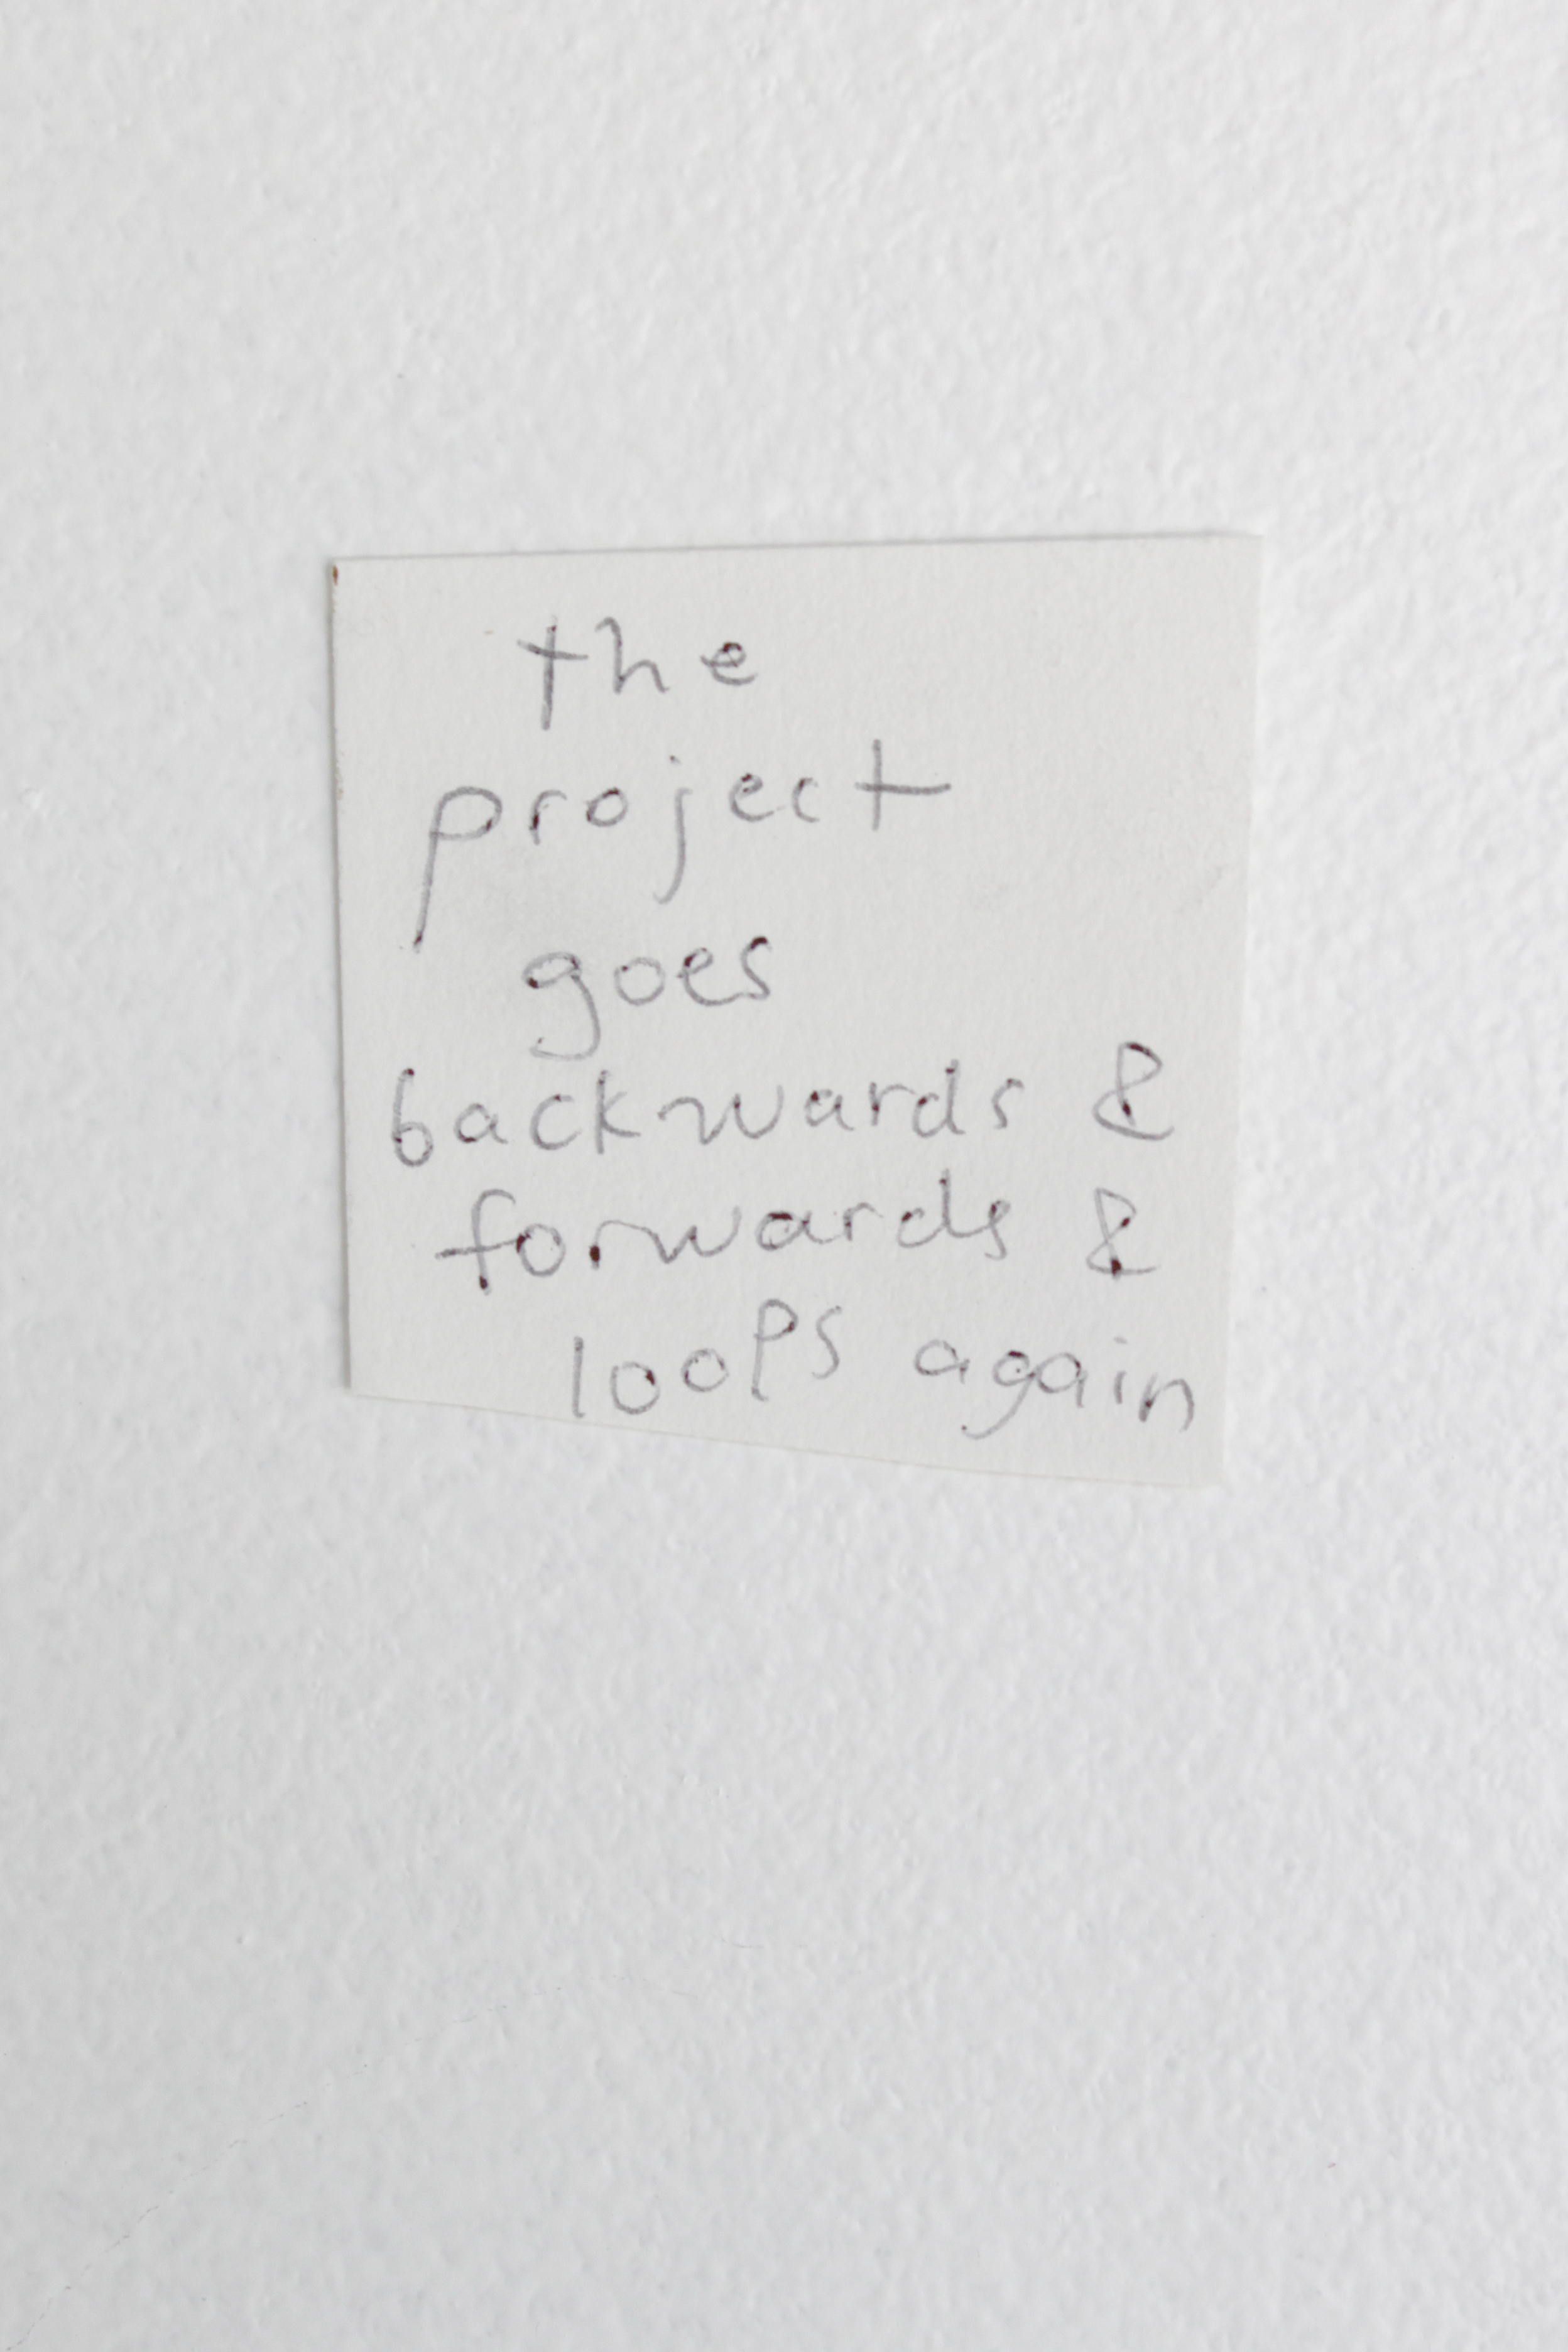 the
project
goes
backwards &
forwards &
loops again